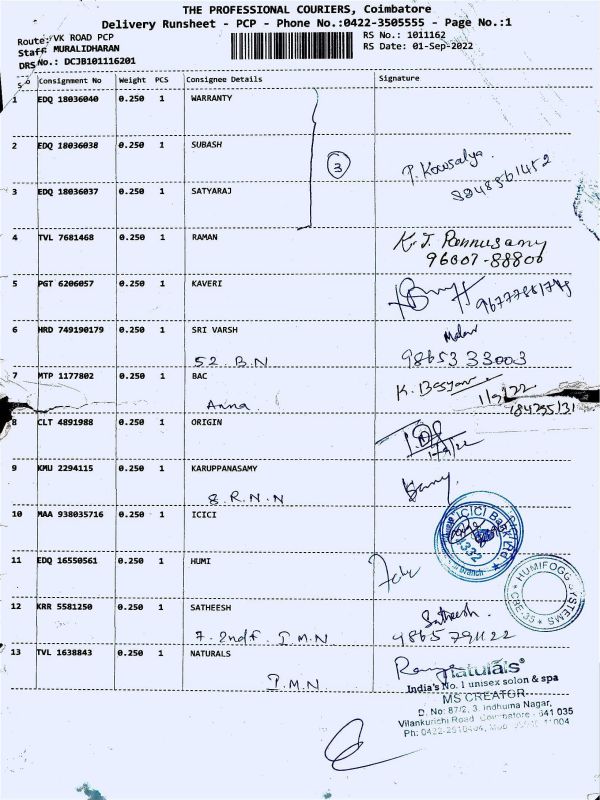 THE PROFESSIONAL COURIERS, Coimbatore
Delivery Runsheet - PCP - Phone No.:0422-3505555 - Page No.:1
Route: VK ROAD PCP
Staff MURALIDHARAN
DRS No.: DCJB101116201
RS No.: 1011162
RS Date: 01-Sep-2022
Consignment No Weight PCS Consignee Details Signature
1 EDQ 18036040 0.250 1 WARRANTY
2 EDQ 18036038 0.250 1 SUBASH
3
P. Kowsalya.
3 EDQ 18036037 0.250 1 SATYARAJ
4 TVL 7681468 0.250 1 RAMAN
K.T. Ponnusamy
96007-88800
5 PGT 6206057 0.250 1 KAVERI
6 HRD 749190179 0.250 1 SRI VARSH
52. B.N
98653 33003
7 MTP 1177802 0.250 1 BAC
Anna
1/9/22
8 CLT 4891988 0.250 1 ORIGIN
9 KMU 2294115 0.250 1 KARUPPANASAMY
8. R.N.N
10 MAA 938035716 0.250 1 ICICI
ICICI Bank Ltd
11 EDQ 16550561 0.250 1 HUMI
HUMIFOGG SYSTEMS
CBE-35
12 KRR 5581250 0.250 1 SATHEESH
7. 2ndf I.M.N
Satheesh.
13 TVL 1638843 0.250 1 NATURALS
I.M.N
naturals
India's No. 1 unisex solon & spa
MS CREATOR
D. No: 87/2, 3, Indhuma Nagar,
Vilankurichi Road, Coimbatore - 641 035